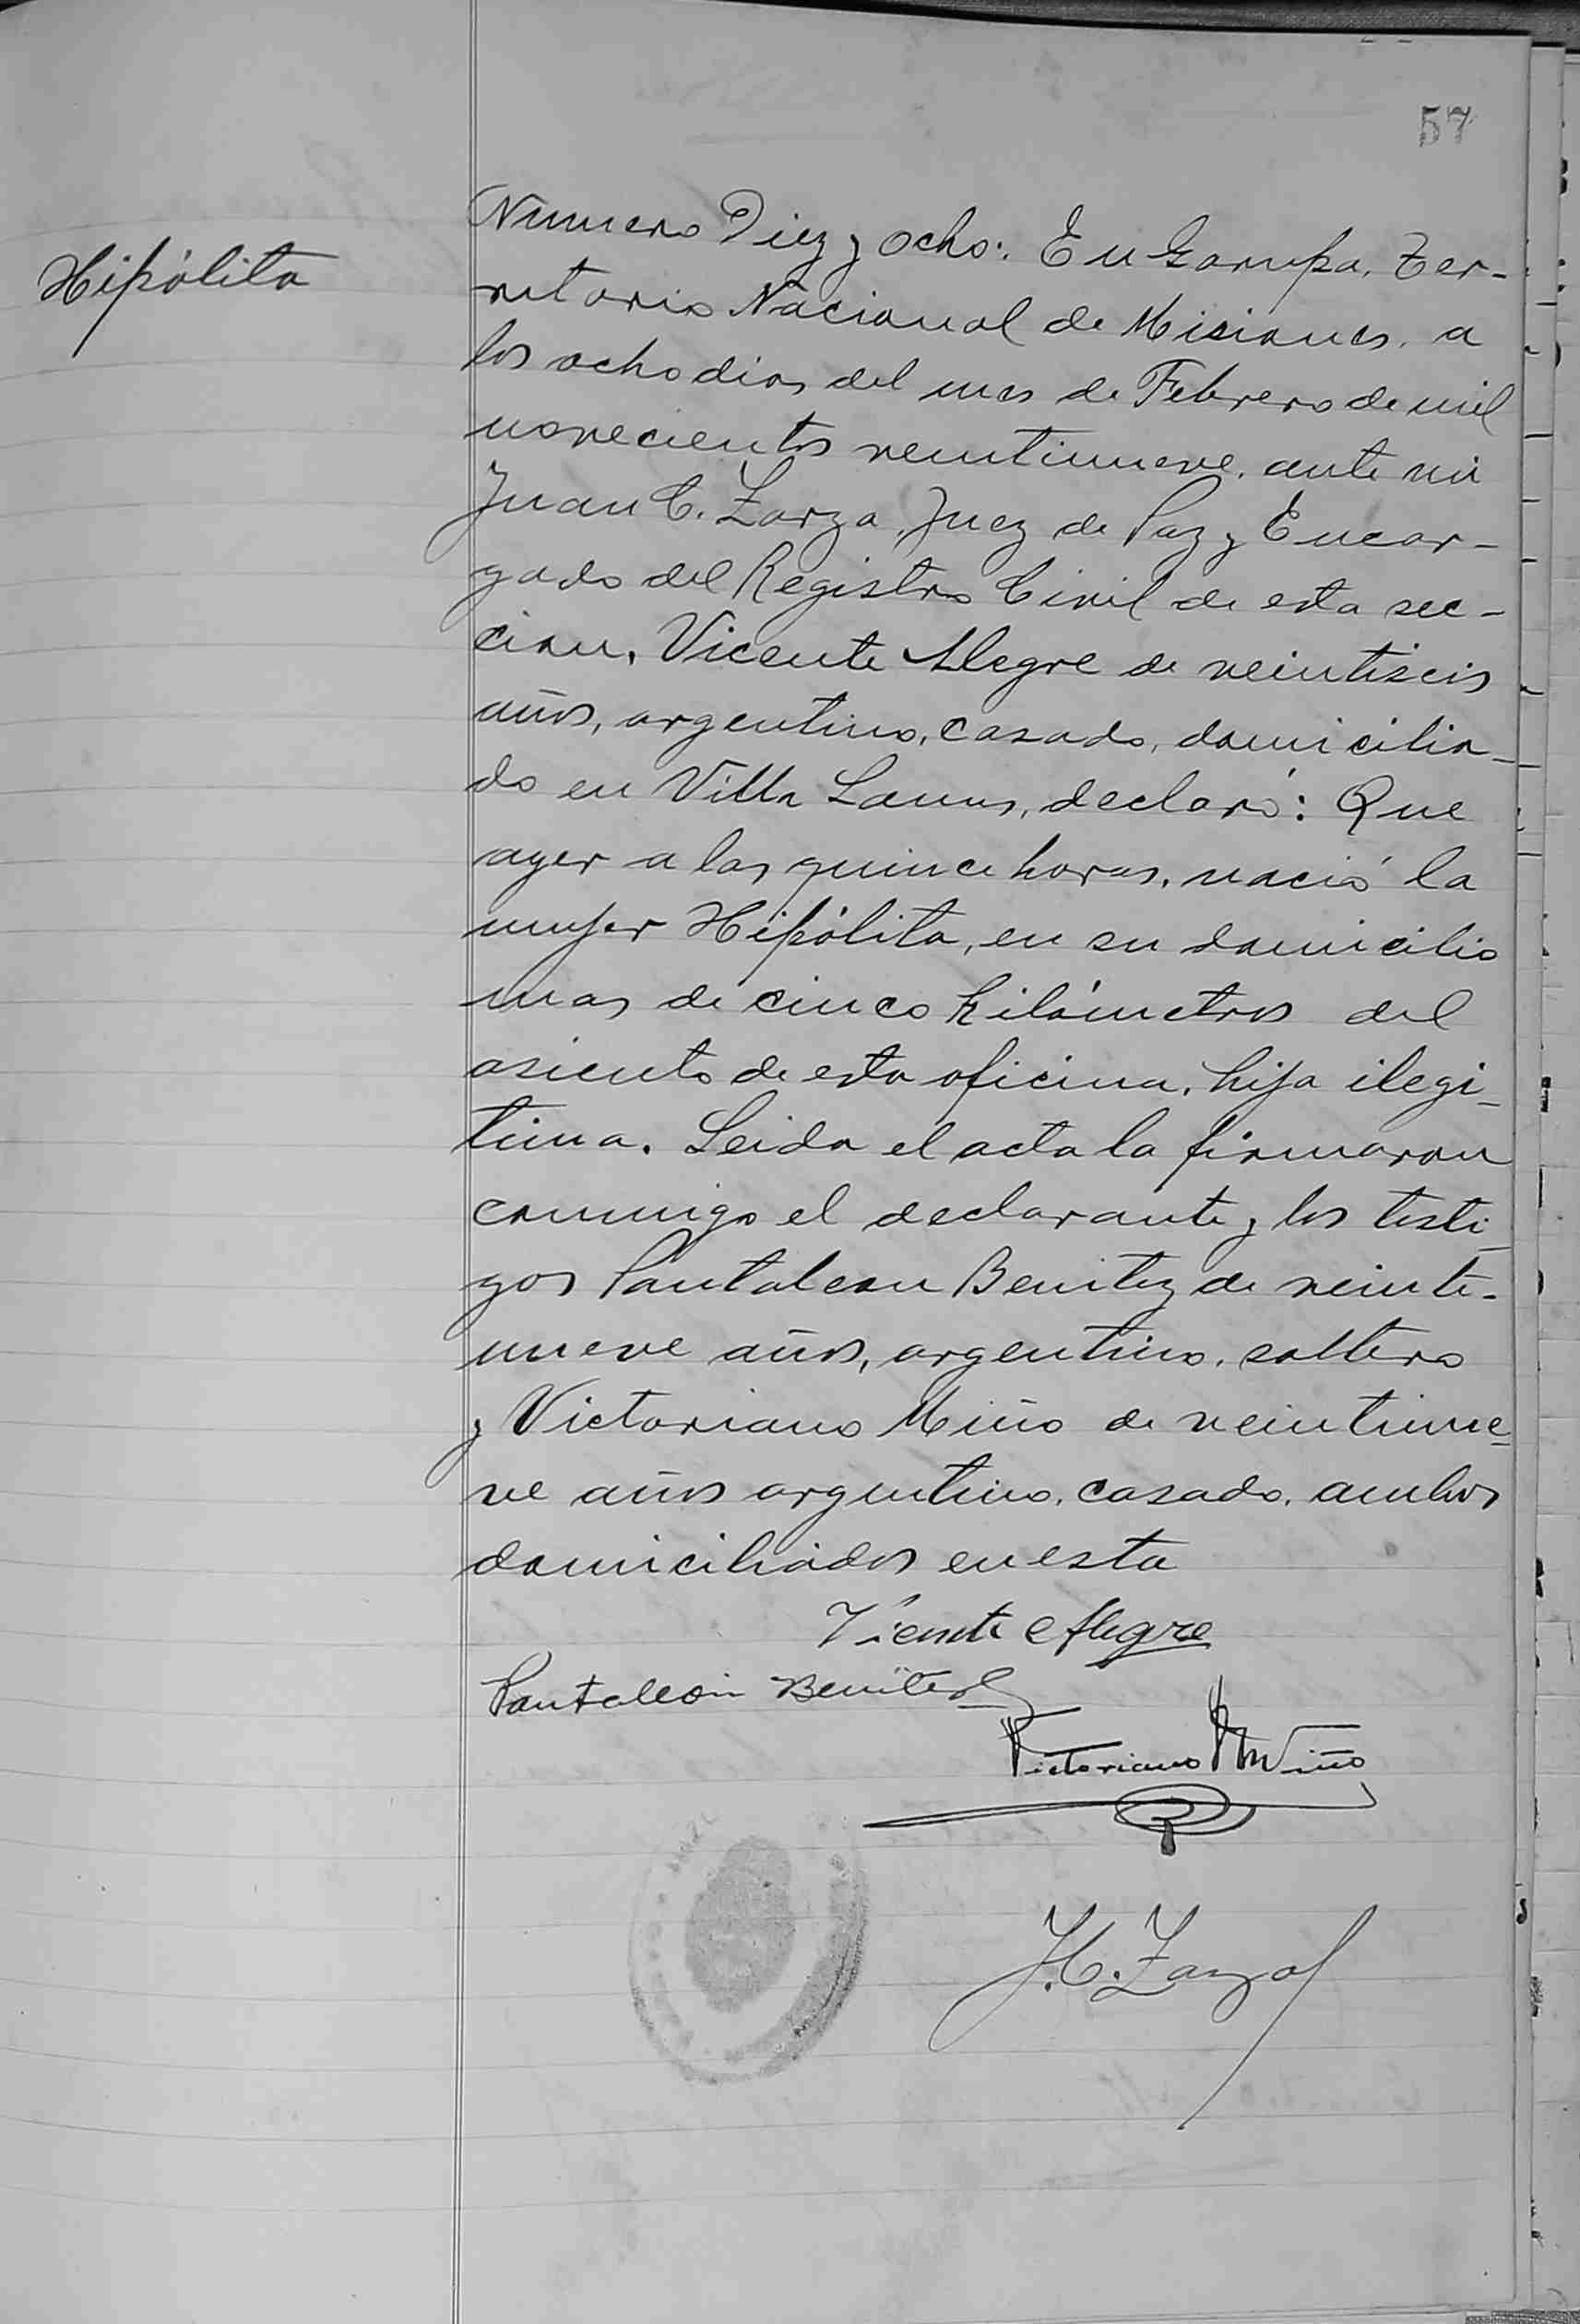 57
Hipólita
Numero Diez y ocho: En Garupa, Ter-
ritorio Nacional de Misiones, a
los ocho dias del mes de Febrero de mil
novecientos veintinueve, ante mi
Juan C. Zarza, Juez de Paz y Encar-
gado del Registro Civil de esta sec-
cion, Vicente Alegre de veintiseis
años, argentino, casado, domicilia-
do en Villa Lanus, declaró: Que
ayer a las quince horas, nació la
mujer Hipólita, en su domicilio
mas de cinco kilómetros del
asiento de esta oficina, hija ilegi-
tima. Leida el acta la firmaron
conmigo el declarante y los testi-
gos Pantaleon Benitez de veinti-
nueve años, argentino, soltero
y Victoriano Miño de veintinue-
ve años argentino, casado, ambos
domiciliados en esta
Vicente Alegre
Pantaleón Benitez
Victoriano Miño
J.C. Zarza